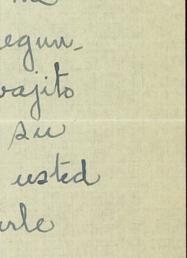 me
egun-
vajito
su
usted
arle